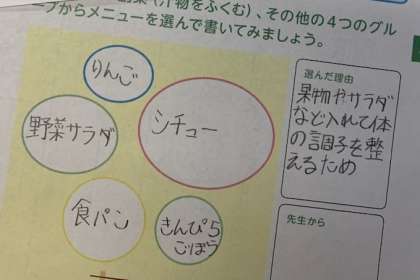 副菜(汁物をふくむ)、その他の4つのグル
ープからメニューを選んで書いてみましょう。
りんご
野菜サラダ
シチュー
食パン
きんぴら
ごぼう
選んだ理由
果物やサラダ
など入れて体
の調子を整
えるため
先生から